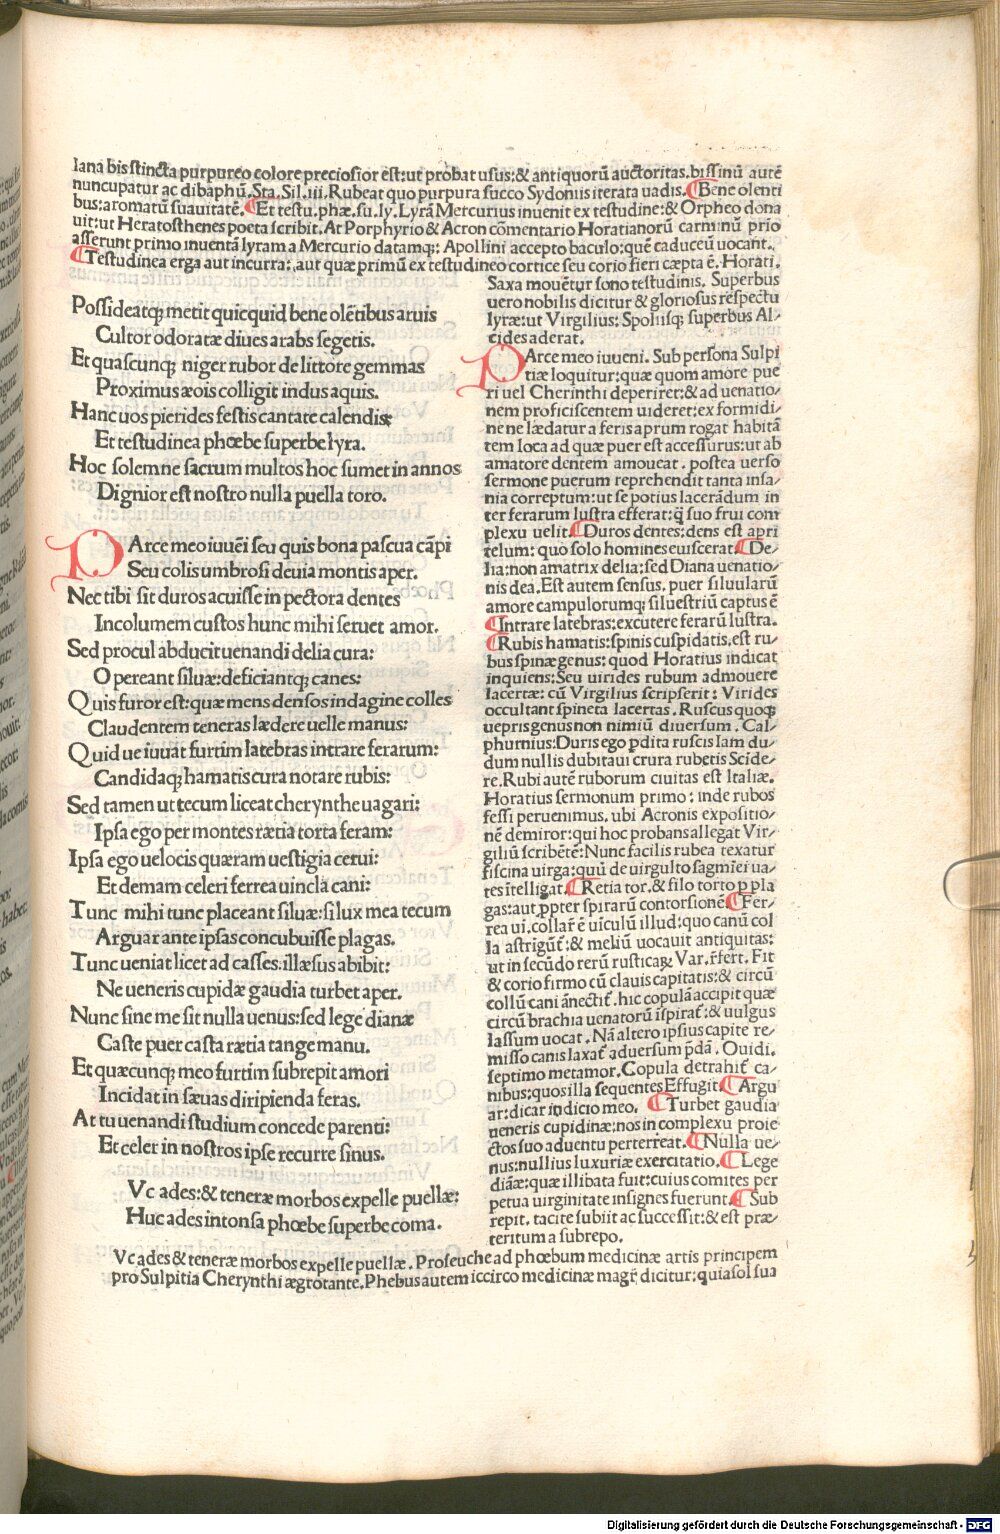 lana bis tincta purpureo colore preciosior est:ut probat usus:& antiquorū auctoritas.bissinū autē
nuncupatur ac dibaphū.Sta.Sil.iii.Rubeat quo purpura succo Sydoniis iterata uadis.⸿Bene olenti
bus:aromatū suauitatē.⸿Et testu.phæ.su.ly.Lyrā Mercurius inuenit ex testudine:& Orpheo dona
uit:ut Heratosthenes poeta scribit.At Porphyrio & Acron cōmentario Horatianorū carminū prio
asserunt primo inuentā lyram a Mercurio datamqꝫ: Apollini accepto baculo:quē caduceū uocant.
⸿Testudinea erga aut incurra:,aut quæ primū ex testudineo cortice seu corio fieri cæpta ē, Horati.
Saxa mouētur sono testudinis. Superbus
uero nobilis dicitur & gloriosus respectu
lyræ:ut Virgilius: Spoliisqꝫ superbus Al-
cides aderat.
Possideatqꝫ metit quicquid bene olētibus aruis
Cultor odoratæ diues arabs segetis.
Et quascunqꝫ niger rubor de littore gemmas
Proximus æois colligit indus aquis.
Hanc uos pierides festis cantate calendis:
Et testudinea phœbe superbe lyra.
Hoc solemne sacrum multos hoc sumet in annos
Dignior est nostro nulla puella toro.
PArce meo iuuēi seu quis bona pascua cāpi
Seu colis umbrosi deuia montis aper.
Nec tibi sit duros acuisse in pectora dentes
Incolumem custos hunc mihi seruet amor.
Sed procul abducit uenandi delia cura:
O pereant siluæ:deficiantqꝫ canes:
Quis furor est:quæ mens densos indagine colles
Claudentem teneras lædere uelle manus:
Quid ue iuuat furtim latebras intrare ferarum:
Candidaqꝫ hamatis cura notare rubis:
Sed tamen ut tecum liceat cherynthe uagari:
Ipsa ego per montes rætia torta feram:
Ipsa ego uelocis quæram uestigia cerui:
Et demam celeri ferrea uincla cani:
Tunc mihi tunc placeant siluæ:si lux mea tecum
Arguar ante ipsas concubuisse plagas.
Tunc ueniat licet ad casses:illæsus abibit:
Ne ueneris cupidæ gaudia turbet aper.
Nunc sine me sit nulla uenus:sed lege dianæ
Caste puer casta rætia tange manu.
Et quæcunqꝫ meo furtim subrepit amori
Incidat in sæuas diripienda feras.
At tu uenandi studium concede parenti:
Et celer in nostros ipse recurre sinus.
Vc ades:& teneræ morbos expelle puellæ:
Huc ades intonsa phœbe superbe coma.
PArce meo iuueni. Sub persona Sulpi
tiæ loquitur:quæ quom amore pue
ri uel Cherinthi deperiret:& ad uenatio-
nem proficiscentem uideret:ex formidi-
ne ne lædatur a feris aprum rogat habitā
tem loca ad quæ puer est accessurus:ut ab
amatore dentem amoueat. postea uerso
sermone puerum reprehendit tanta insa-
nia correptum:ut se potius lacerādum in
ter ferarum lustra efferat:q̄ suo frui com
plexu uelit.⸿Duros dentes:dens est apri
telum: quo solo homines euiscerat.⸿De-
lia:non amatrix delia:sed Diana uenatio-
nis dea. Est autem sensus. puer siluularū
amore campulorumqꝫ siluestriū captus ē
⸿Intrare latebras:excutere ferarū lustra.
⸿Rubis hamatis:spinis cuspidatis.est ru-
bus spinæ genus: quod Horatius indicat
inquiens:Seu uirides rubum admouere
lacertæ: cū Virgilius scripserit: Virides
occultant spineta lacertas. Ruscus quoqꝫ
uepris genus non nimiū diuersum. Cal-
phurnius:Duris ego pdita ruscis Iam du-
dum nullis dubitaui crura rubetis Scide-
re.Rubi autē ruborum ciuitas est Italiæ.
Horatius sermonum primo: inde rubos
fessi peruenimus. ubi Acronis expositio-
nē demiror:qui hoc probans allegat Vir-
giliū scribētē:Nunc facilis rubea texatur
fiscina uirga:quū de uirgulto sagmīei ua-
tes ītelligat.⸿Retia tor.& filo torto p pla
gas:aut ppter spirarū contorsionē.⸿Fer-
rea ui.collar̄ ē uiculū illud:quo canū col
la astrigūt̄:& meliū uocauit antiquitas:
ut in secūdo rerū rusticaꝝ Var.r̄fert. Fit
& corio firmo cū clauis capitatis:& circū
collū cani ānectit̄. hic copulā accipit quæ
circū brachia uenatorū īspirat̄:& uulgus
lassum uocat. Nā altero ipsius capite re-
misso canis laxat̄ aduersum p̄dā. Ouidi.
septimo metamor. Copula detrahit̄ ca-
nibus:quos illa sequentes Effugit.⸿Argu
ar:dicar indicio meo. ⸿Turbet gaudia
ueneris cupidinæ:nos in complexu proie
ctos suo aduentu perterreat.⸿Nulla ue-
nus:nullius luxuriæ exercitatio.⸿Lege
diāæ:quæ illibata fuit:cuius comites per
petua uirginitate insignes fuerunt.⸿Sub
repit. tacite subiit ac successit:& est præ-
teritum a subrepo.
Vc ades & teneræ morbos expelle puellæ. Proseuche ad phœbum medicinæ artis principem
pro Sulpitia Cherynthi ægrotante. Phebus autem iccirco medicinæ magr̄ dicitur:quia sol sua
Digitalisierung gefördert durch die Deutsche Forschungsgemeinschaft - DFG